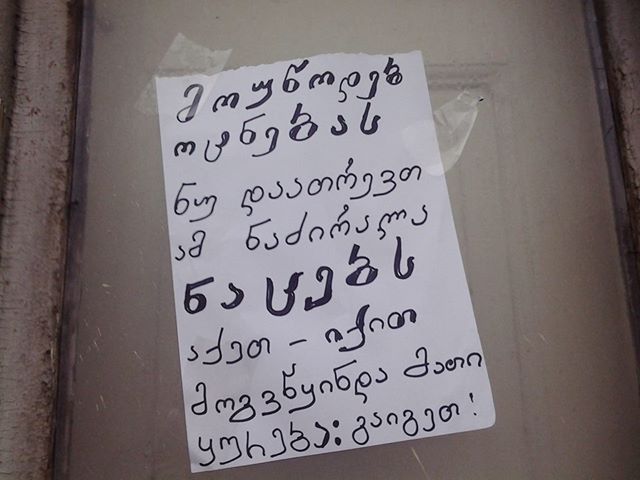 მოუწოდებ
ოცნებას
ნუ დაათრევთ
ამ ნაძირალა
ნაცებს
აქეთ - იქით
მოგვწყინდა მათი
ყურება: გაიგეთ!